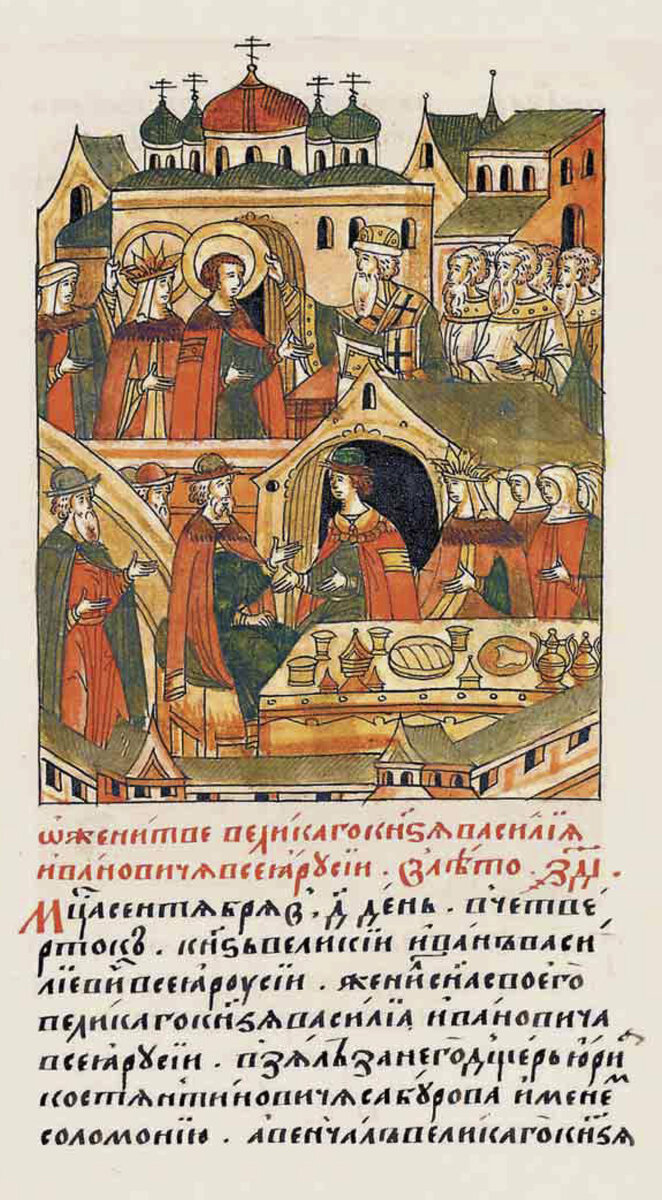 ѡ женитве великаго кн҃ѕѧ василїѧ
ивановичѧ всеѧ русїи . в лѣто . ҂зд҃і .
Мц҃а сентѧбрѧ в . д҃ день . в четве
ртокъ . кн҃ѕь великїи иванъ васи
лїевич всеѧ роусїи . женил сн҃а своего
великаго кн҃ѕѧ василїѧ ивановича
всеѧ русїи . взѧлъ за него дщерь юриꙗ
костѧнтиновичѧ сабурова именем
соломонїю . а венчалъ великаго кн҃ѕѧ